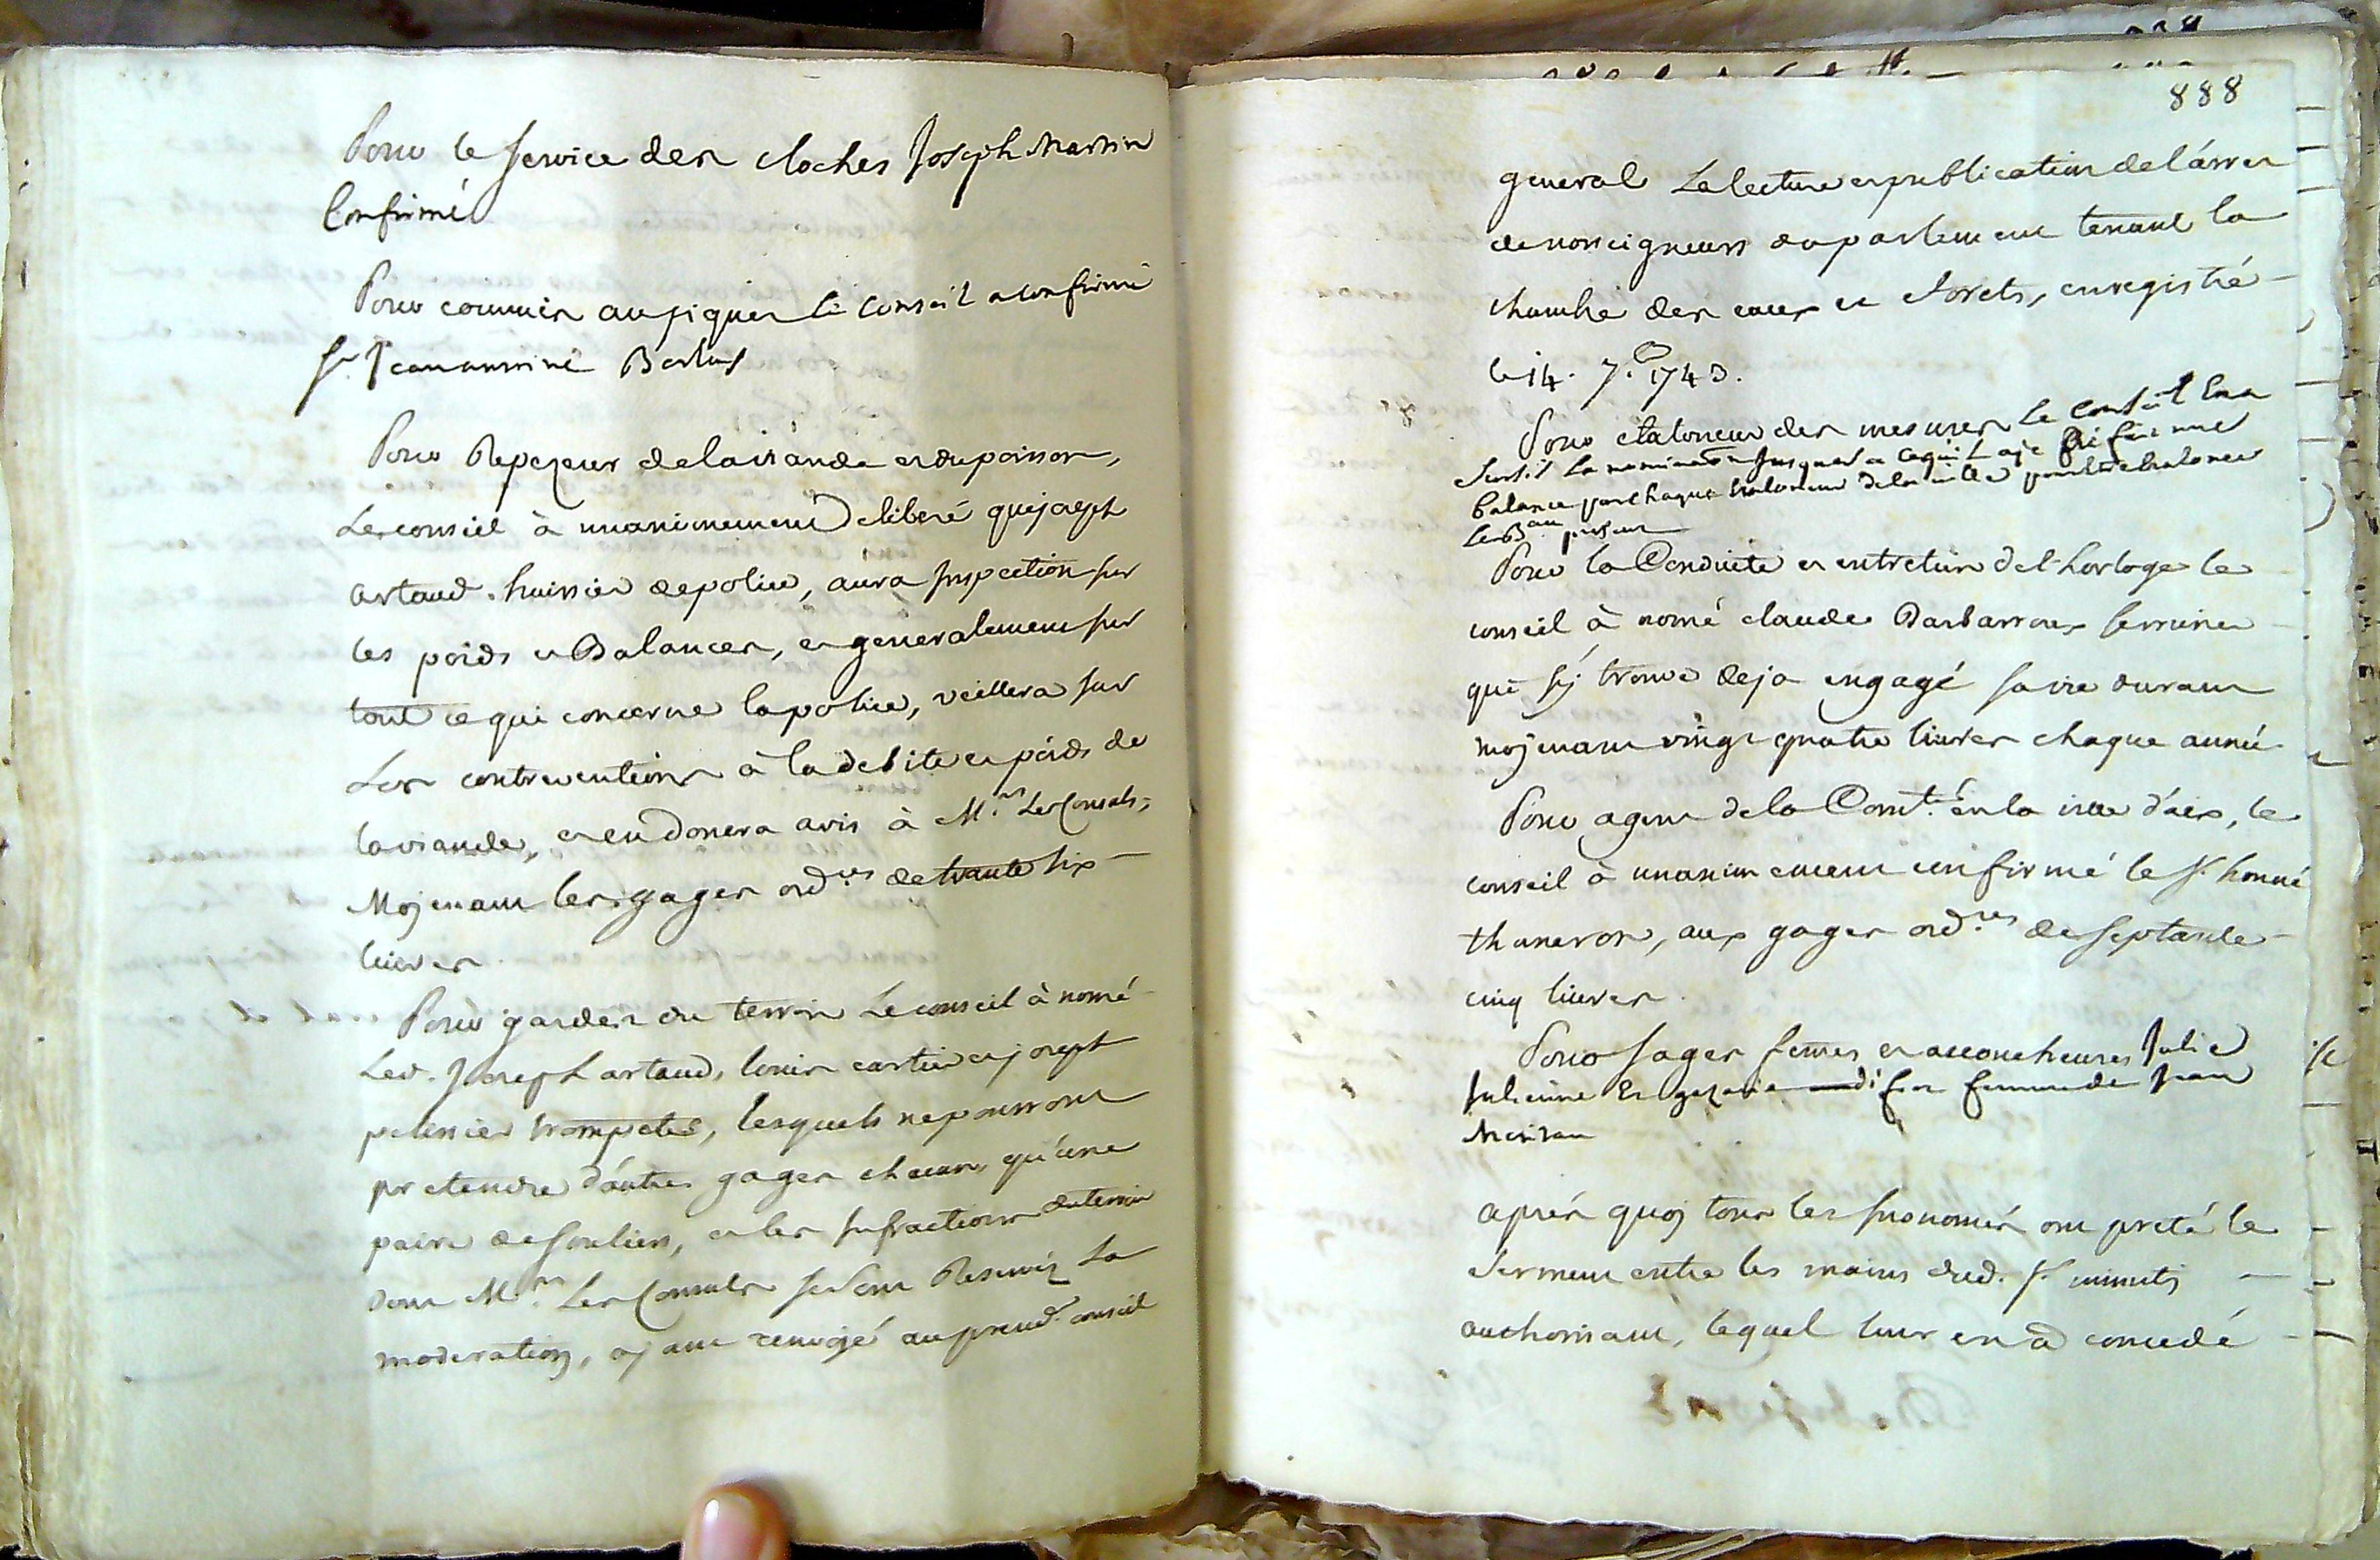 Pour le service des cloches Joseph Martin
Confirmé
Pour commis au piquet le conseil a confirmé
Sr. Jean Barlus
Pour Repezeur de la viande et du poisson,
Le conseil à unanimement deliberé que joseph
artaud huissier de police, aura Inspection sur
les poids et Balances, et generalement sur
tout ce qui concerne la police, veillera sur
Les contreventions à la debite et poids de
la viande, et en donera avis à Mrs. Les Consuls,
Mojenant les gages ordres. de trante six
livres
Pour gardes du terroir Le conseil à nomé
Led. Joseph artaud, louis cartier et joseph
pelissier trompete, lesquels ne pourront
pretendre d'autres gages chacun, qu'une
paire de souliers, et les Infractions du terroir
dont Mrs. Les Consuls se sont Reservéz La
moderation, ajant renvojé au prend. conseil
888
general La lecture et publication de l'árret
de nosseigneurs du parlement tenant la
chambre des eaux et forets, enregistré
le 14. 7.bre 1743.
Pour etaloneur des mesures Le Conseil en a
sursit La nomination Jusques a ce qu'il aje une
balance pour chaque de la ville pour etaloner
Les
Pour la Conduite et entretien de l'horloge le
conseil à nomé claude Barbarroux serrurier
qui s'ÿ trouve deja engagé sa vie durant
mojenant vingt quatre livres chaque année
Pour agent de la Comté. en la ville d'aix, le
conseil à unanimement confirmé le Sr. honnoré
thaneron, aux gages ordres. de septante
cinq livres.
Pour sages femes et accoucheuses Julie
Julienne Et femme de Jean
aprés quoj tous les susnomés ont preté le
serment entre les mains dud. Sr. minuti
authorisant, lequel leur en a concedé